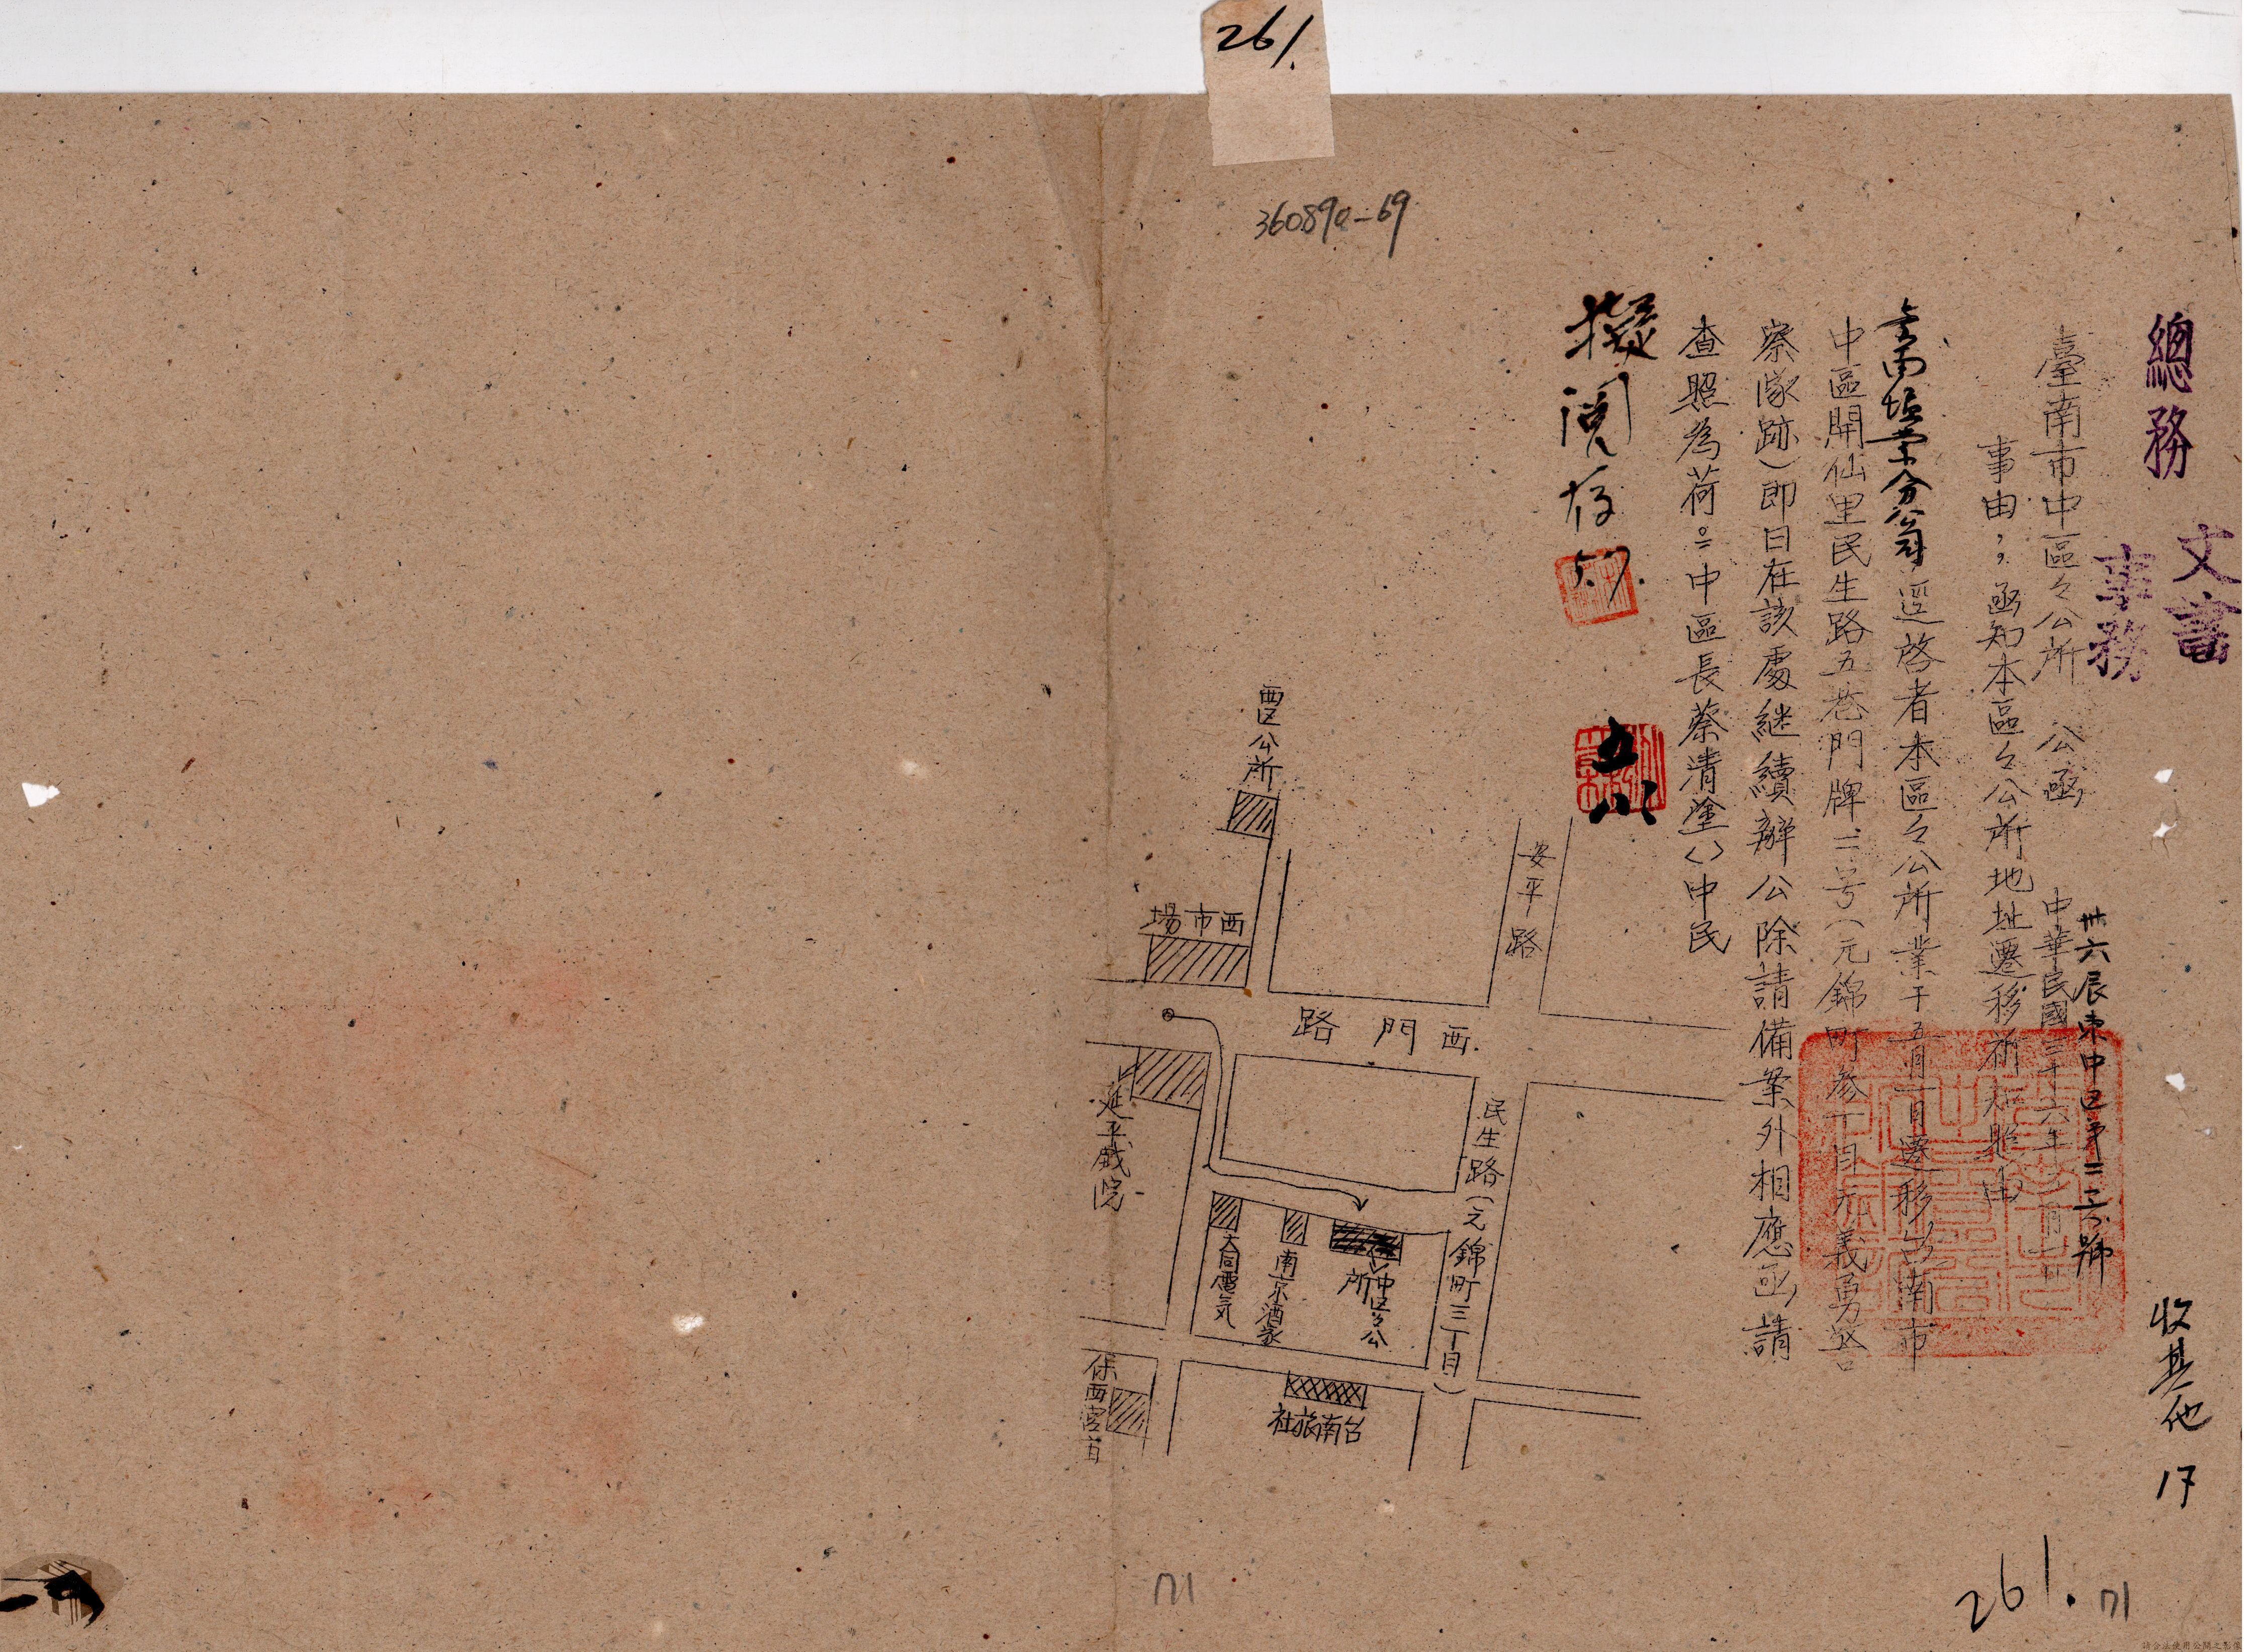 261.
360890-69
總務
文書
事務
臺南市中區々公所 公函
卅六辰東中区第二三號
中華民國三十六年五月一日
事由:函知本區々公所地址遷移祈知照由
台南塩業分公司 逕啓者本區々公所業于五月一日遷移台南市
中區開仙里民生路五巷門牌二号(元錦町參丁目元義勇警
察隊跡)即日在該處継續辦公除請備案外相應函請
查照為荷。中區長蔡清塗〈〉中民
擬閱存
五八
收其他 17
安平路
西区公所
西市場
西門路
延平戯院
民生路(元錦町三丁目)
中区々公所
南京酒家
大同電気
台南旅社
保西宮
261.
171
171
請合法使用公開之影像